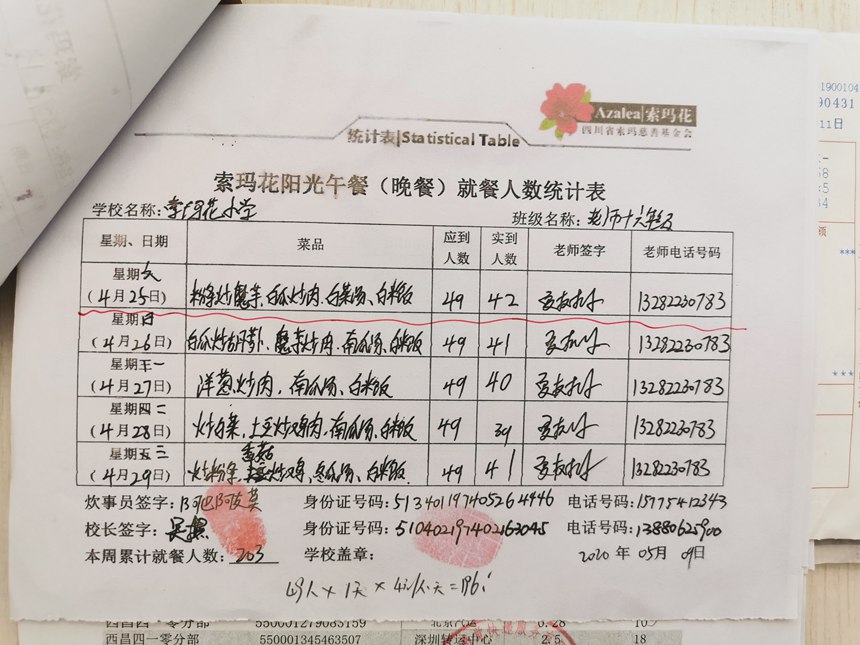 Azalea|索玛花
四川省索玛慈善基金会
统计表|Statistical Table
索玛花阳光午餐（晚餐）就餐人数统计表
学校名称：李阿花小学 班级名称：老师十六年级
星期、日期 菜品 应到人数 实到人数 老师签字 老师电话号码
星期六
（4月25日） 粉条炒魔芋、白瓜炒肉、白菜汤、白米饭 49 42 13282230783
星期日
（4月26日） 白瓜炒胡萝卜、魔芋炒肉、南瓜汤、白米饭 49 41 13282230783
星期一
（4月27日） 洋葱炒肉，南瓜汤、白米饭 49 40 13282230783
星期四二
（4月28日） 炒白菜，土豆炒鸡肉、南瓜汤、白米饭 49 39 13282230783
星期五三
（4月29日） 炒粉条、香菇炒鸡、冬瓜汤、白米饭. 49 41 13282230783
炊事员签字： 身份证号码：513401197405264446 电话号码：15775412343
校长签字： 身份证号码：510402197402163045 电话号码：13880625900
本周累计就餐人数：203 学校盖章： 2020年05月09日
49人×1天×4元/人·天=196
西昌四一零分部 550001279083159 6.28
西昌四一零分部 550001345463507 深圳转运中心 2.5 18
1900104
90431
11日